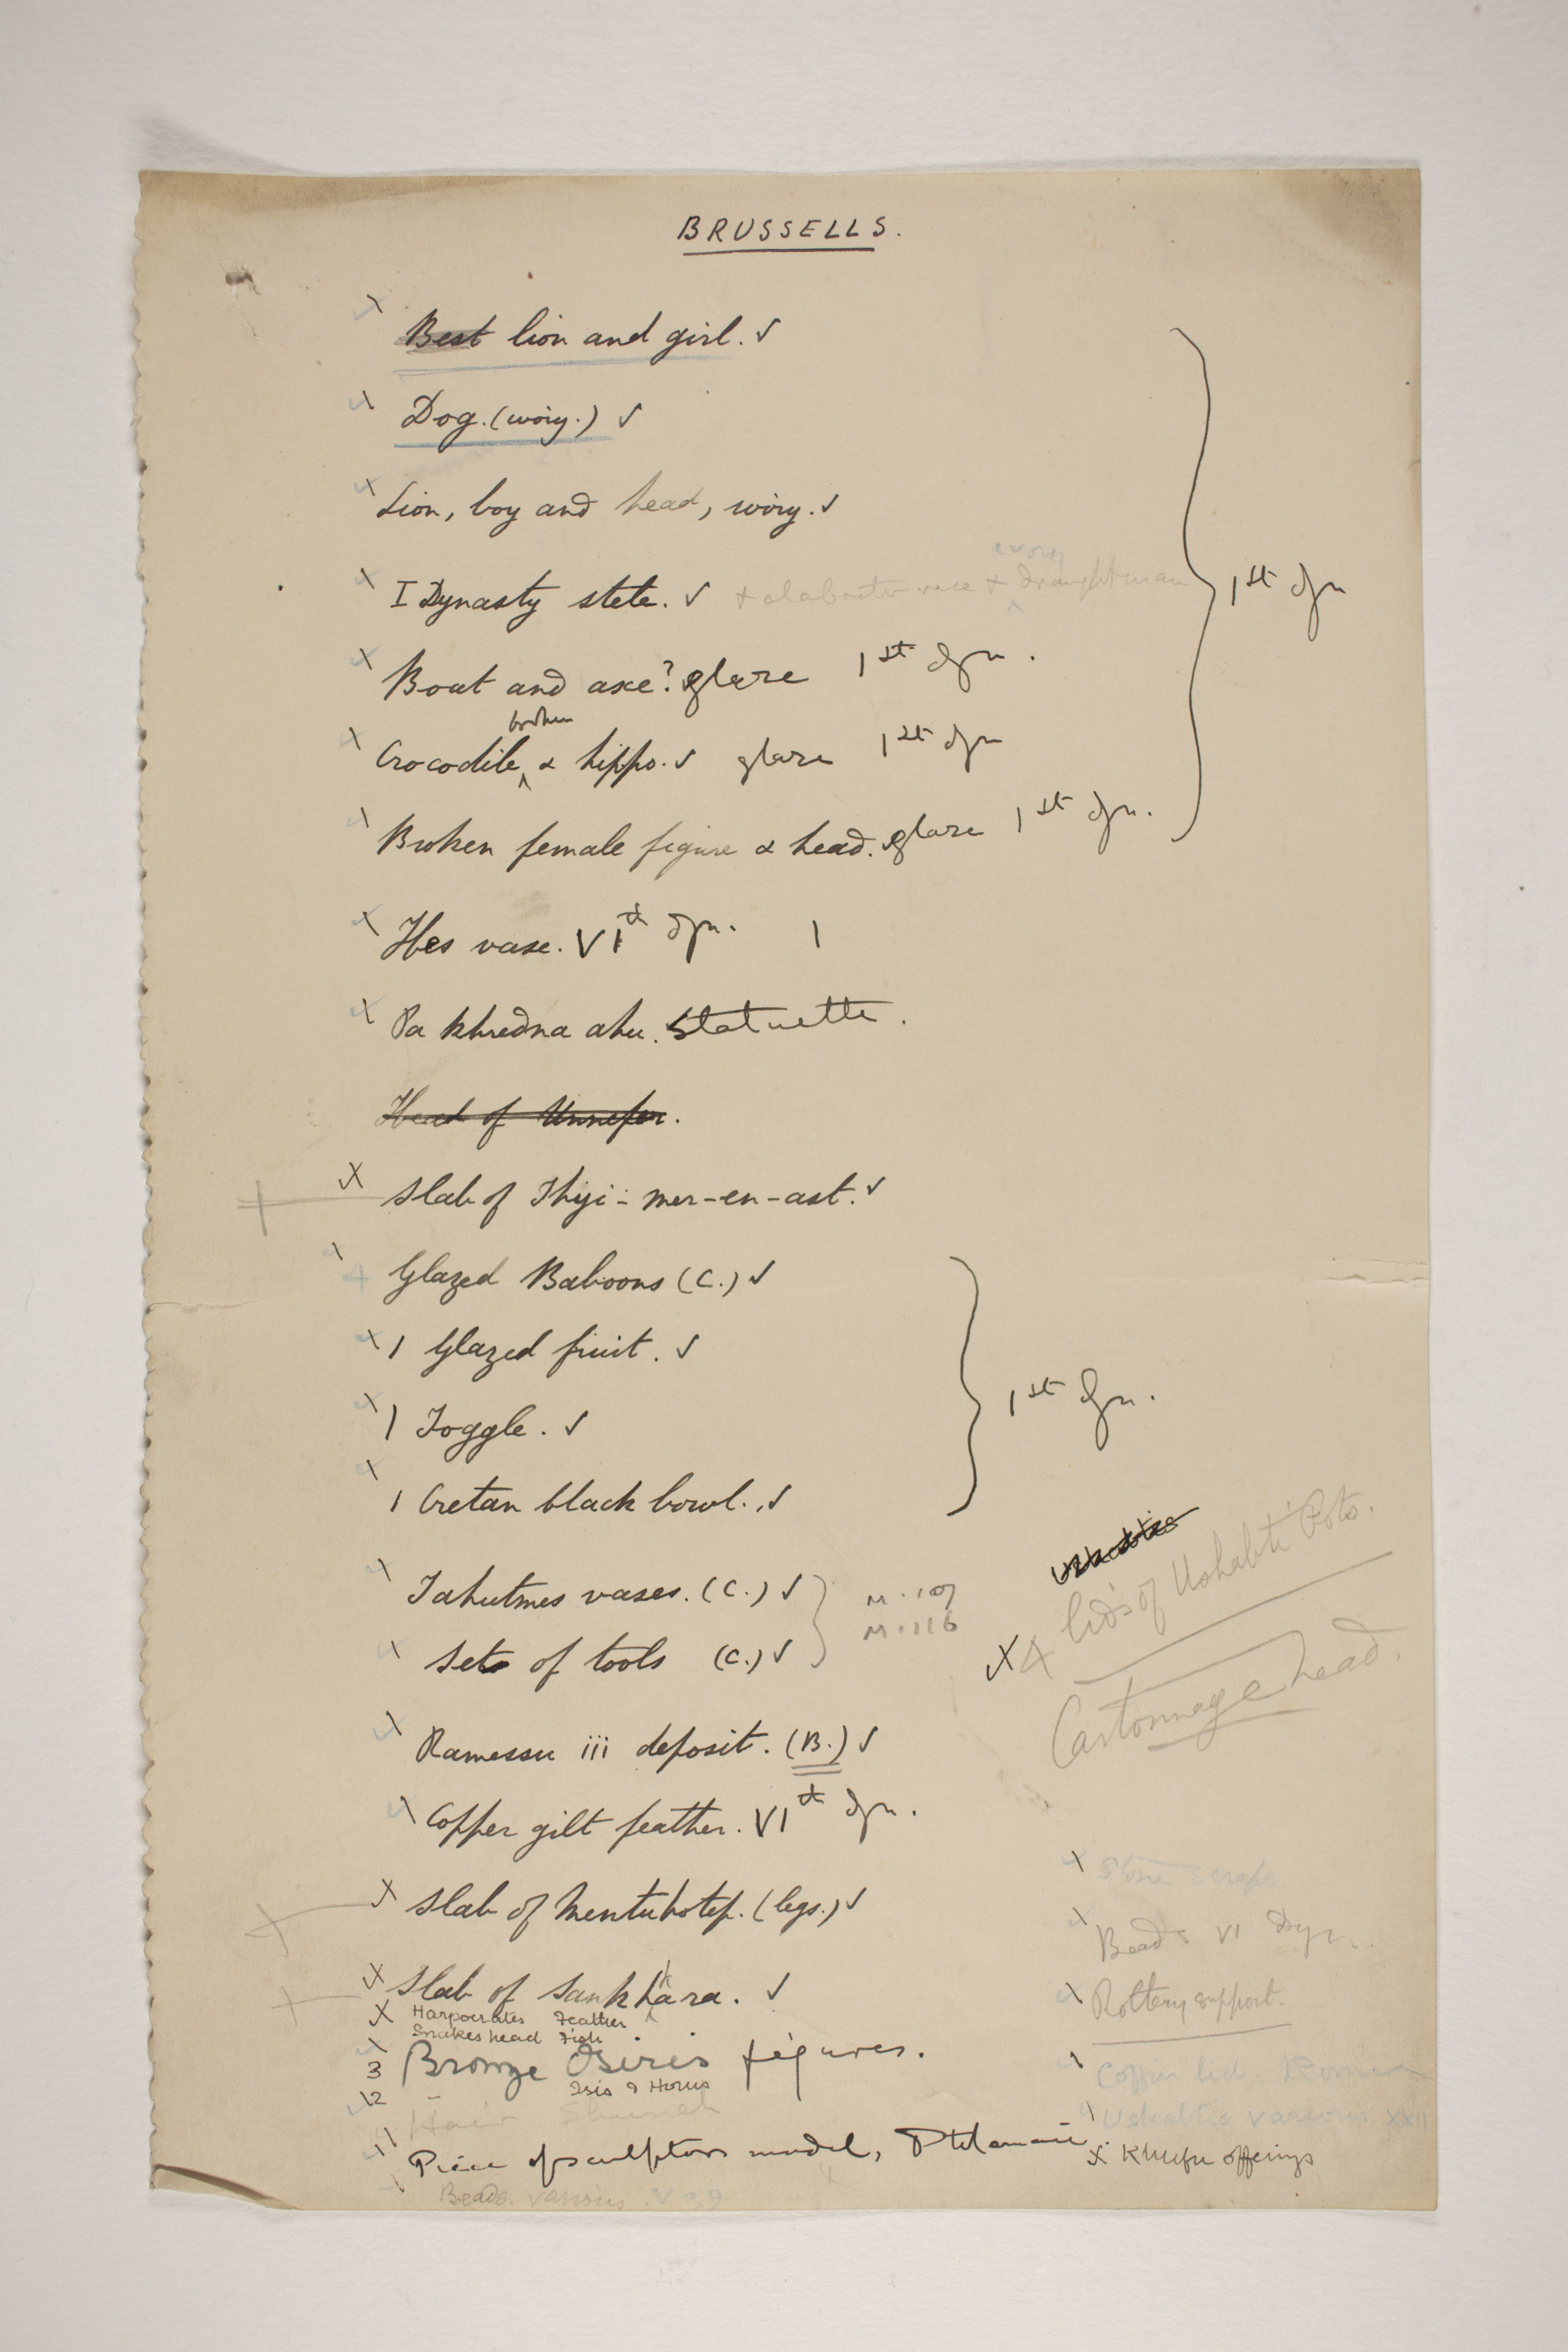 BRUSSELLS.
Best lion and girl. ✓
Dog. (ivory.) ✓
Lion, boy and head, ivory. ✓
ivory
I Dynasty stele. ✓ + alabaster vase + draughtman
Boat and axe? glaze 1st dyn.
broken
Crocodile & hippo. ✓ glaze 1st dyn
Broken female figure & head. glaze 1st dyn.
1st dyn
Hes vase. VIth dyn. 1
Pa khredna ahu. Statuette.
Head of Unnefer.
X Slab of Thyi-mer-en-ast. ✓
4 Glazed Baboons (C.) ✓
1 Glazed fruit. ✓
1 Toggle. ✓
1 Cretan black bowl. ✓
1st dyn.
Tahutmes vases. (C.) ✓ M.107
Sets of tools (C.) ✓ M.116
Ushabties
X 4 lids of Ushabti Pots.
Cartonnage head.
Ramessu iii deposit. (B.) ✓
Copper gilt feather. VIth dyn.
X Slab of Mentuhotep. (legs.) ✓
X Slab of Sankhkara. ✓
X Harpocrates Feather
Snakes head Fish
3 Bronze Osiris figures.
12 " Isis & Horus
1 Hair Shuneh
1 Piece of sculptors model, Ptolemaic.
Beads. various. V 39
Stone scraps
Beads VI Dyn.
Pottery support.
Copper lid. Roman
Ushabtis various XXII
X Khufu offerings